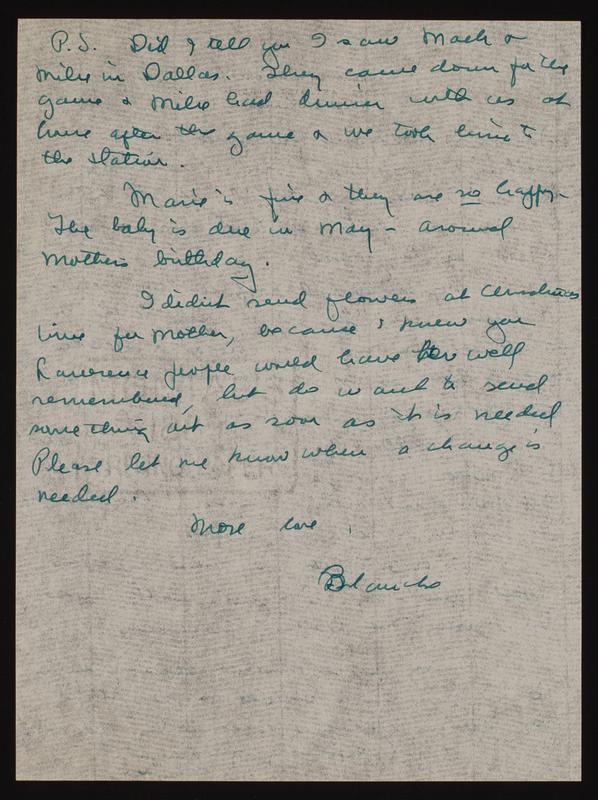 P.S. Did I tell you I saw Mack &
Mike in Dallas. They came down for the
game & Mike had dinner with us at
home after the game & we took him to
the station.
Marie is fine & they are so happy -
The baby is due in May - around
Mother's birthday.
I didn't send flowers at Christmas
time for Mother, because I knew you
Lawrence people would have her well
remembered, but do want to send
something out as soon as it is needed
Please let me know when a change is
needed.
More love,
Blanche